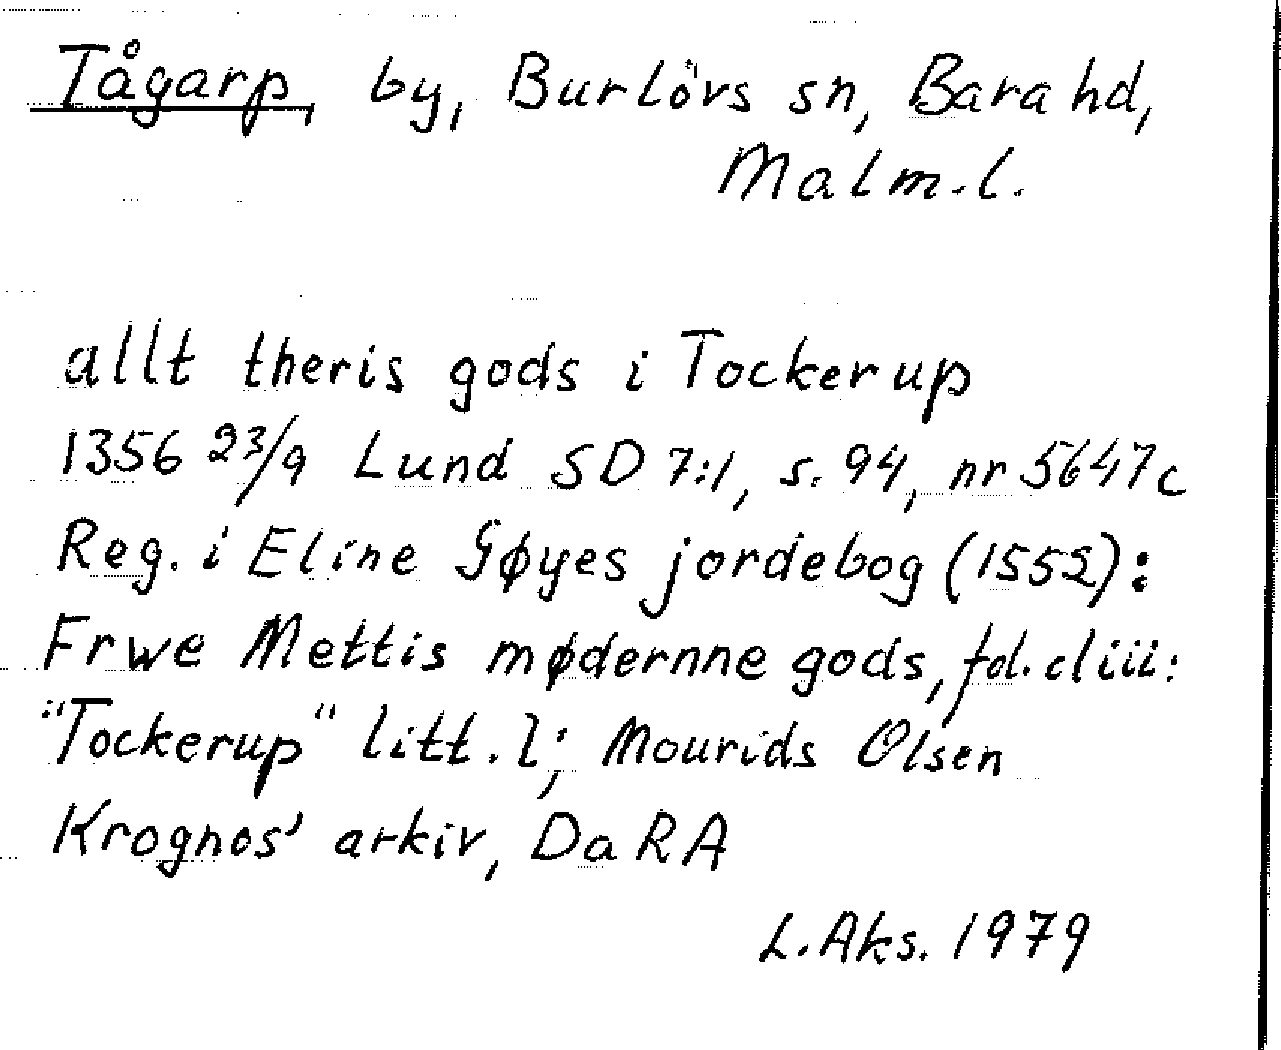 Tågarp, by, Burlövs sn, Bara hd,
Malm.l.
allt theris gods i Tockerup
1356 23/9 Lund SD 7:1, s. 94, nr 5647c
Reg. i Eline Gøyes jordebog (1552):
Frwe Mettis mødernne gods, fol. cliii:
"Tockerup" litt. l; Mourids Olsen
Krognos' arkiv, DaRA
L. Aks. 1979